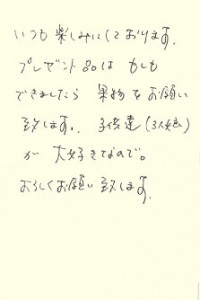 いつも楽しみにしております。
プレゼント品は もしも
できましたら 果物をお願い
致します。 子供達(3人娘)
が 大好きなので。
よろしくお願い致します。